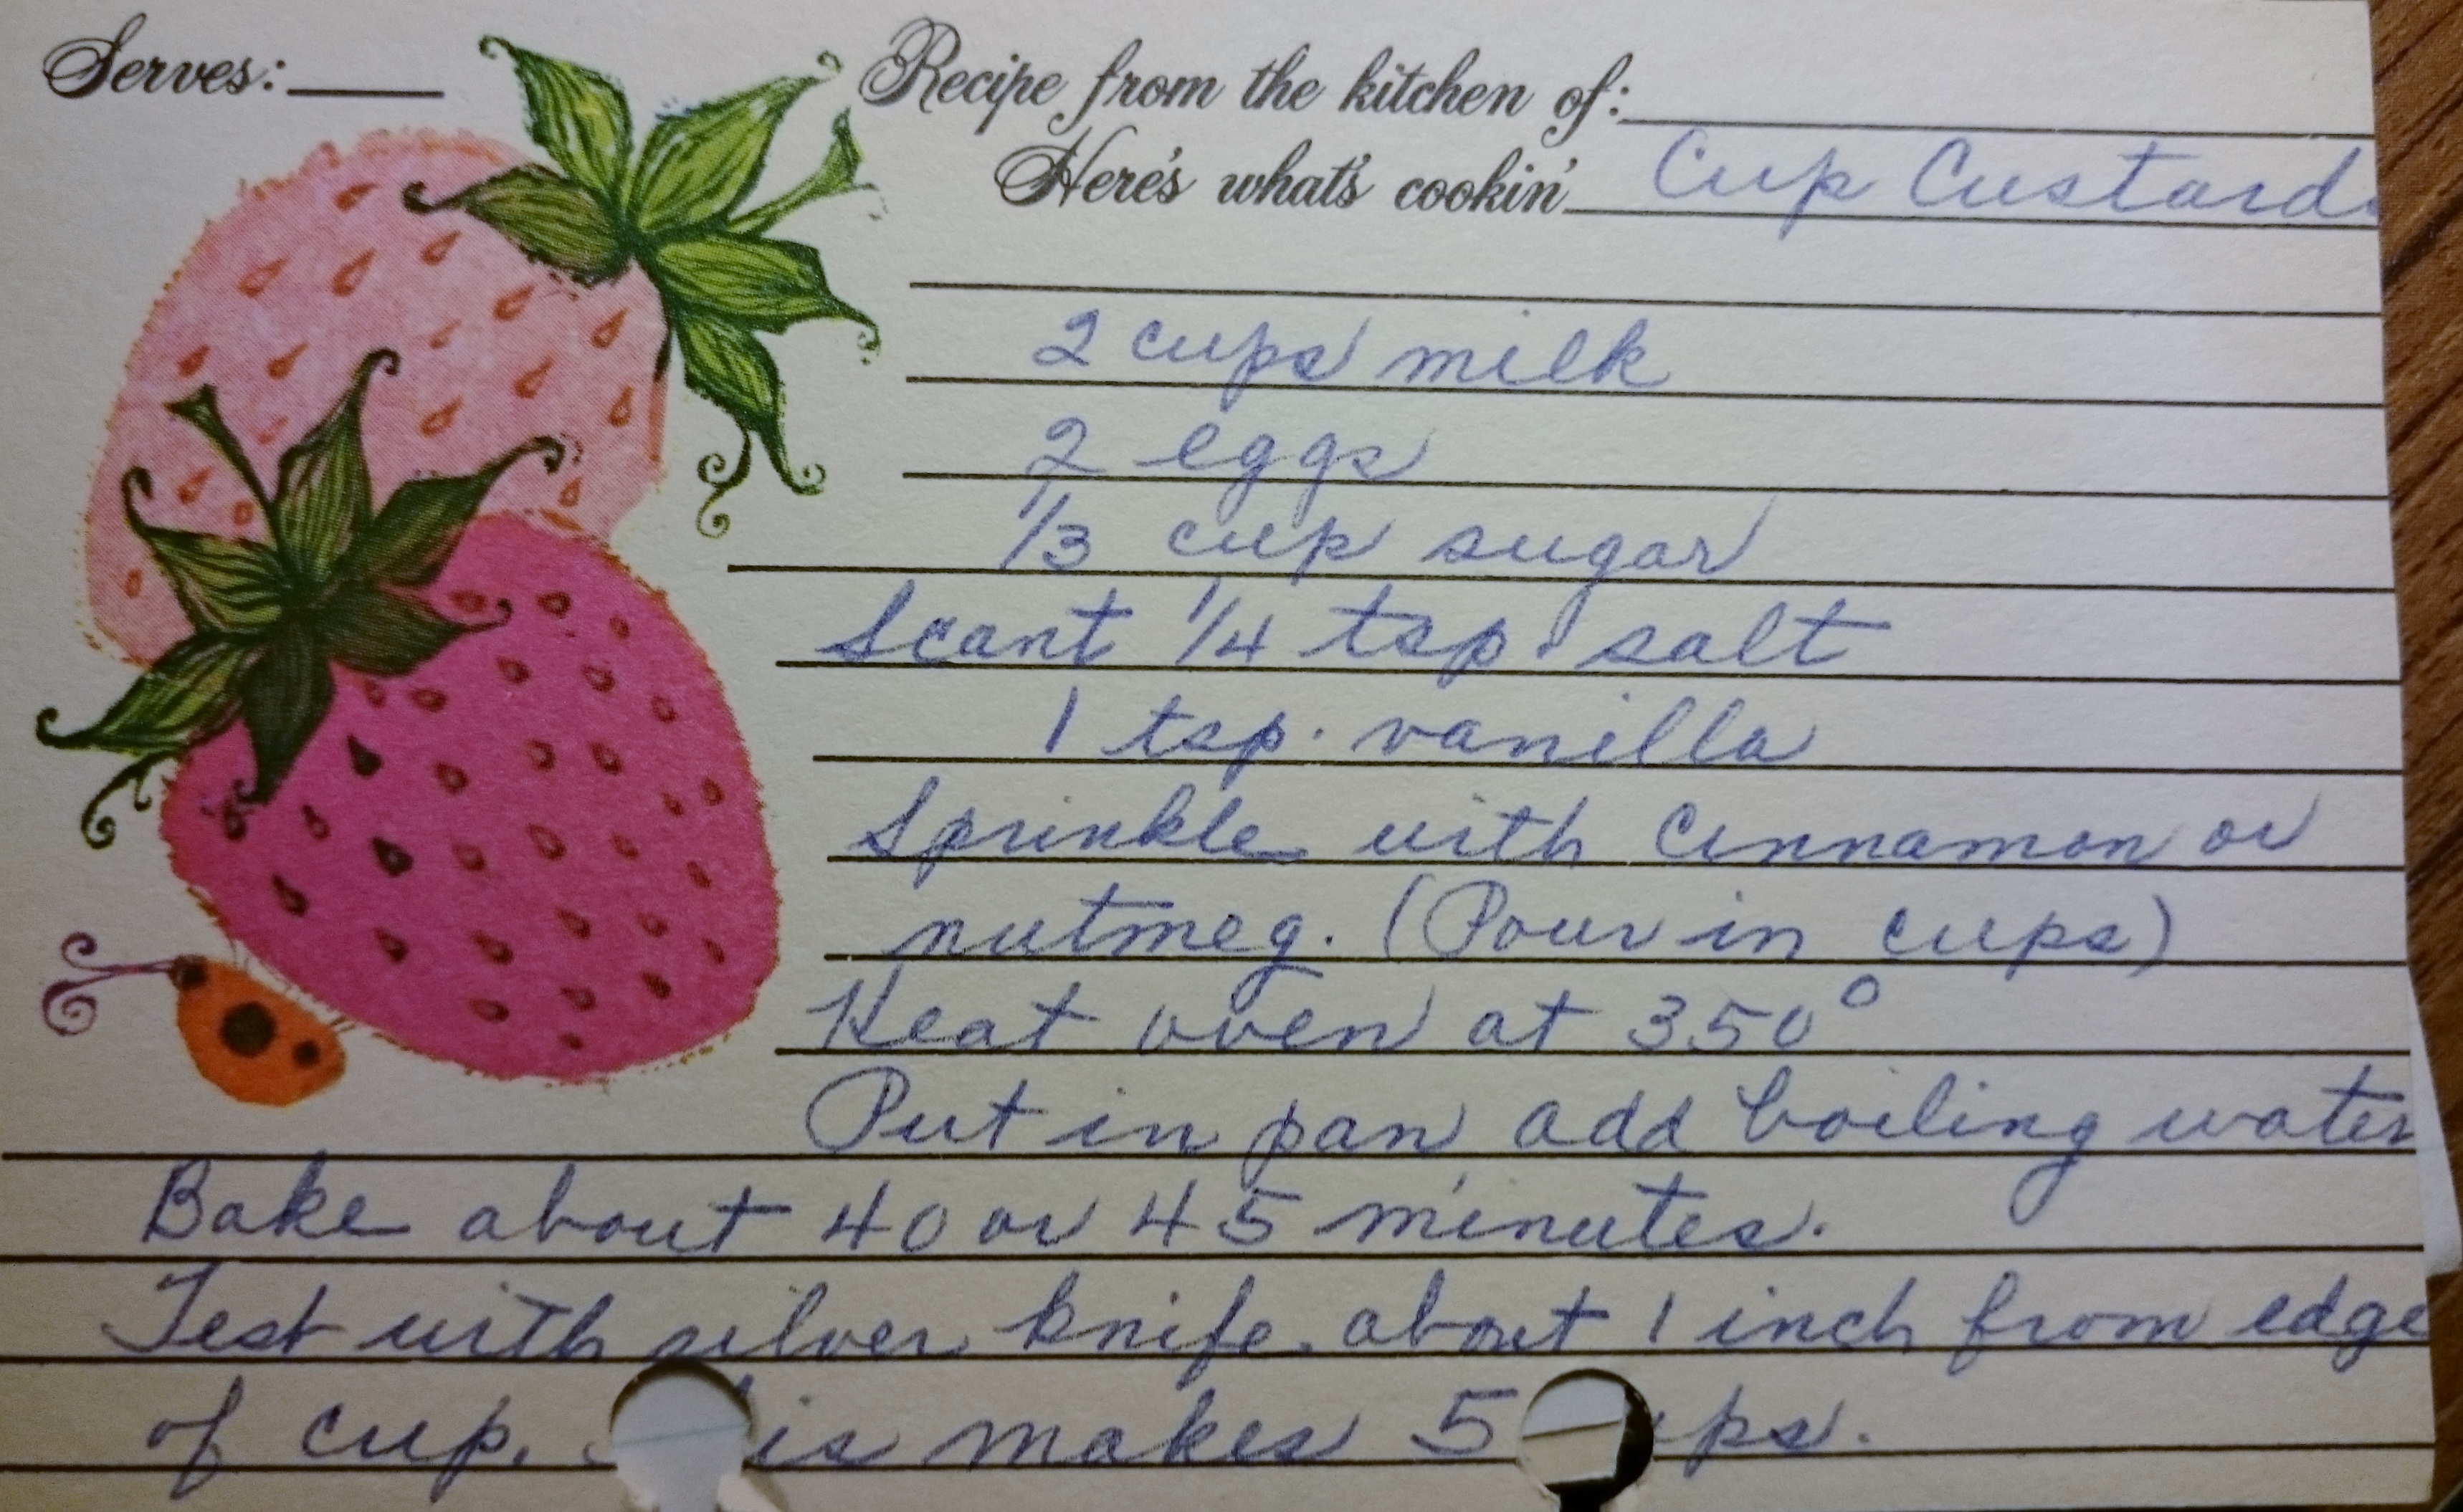 Serves:
Recipe from the kitchen of:
Here's what's cookin' Cup Custard.
2 cups milk
2 eggs
1/3 cup sugar
Scant 1/4 tsp. salt
1 tsp. vanilla
Sprinkle with Cinnamon or
nutmeg. (Pour in cups)
Heat oven at 350°
Put in pan add boiling water
Bake about 40 or 45 minutes.
Test with silver knife. about 1 inch from edge
of cup. is makes 5 ps.